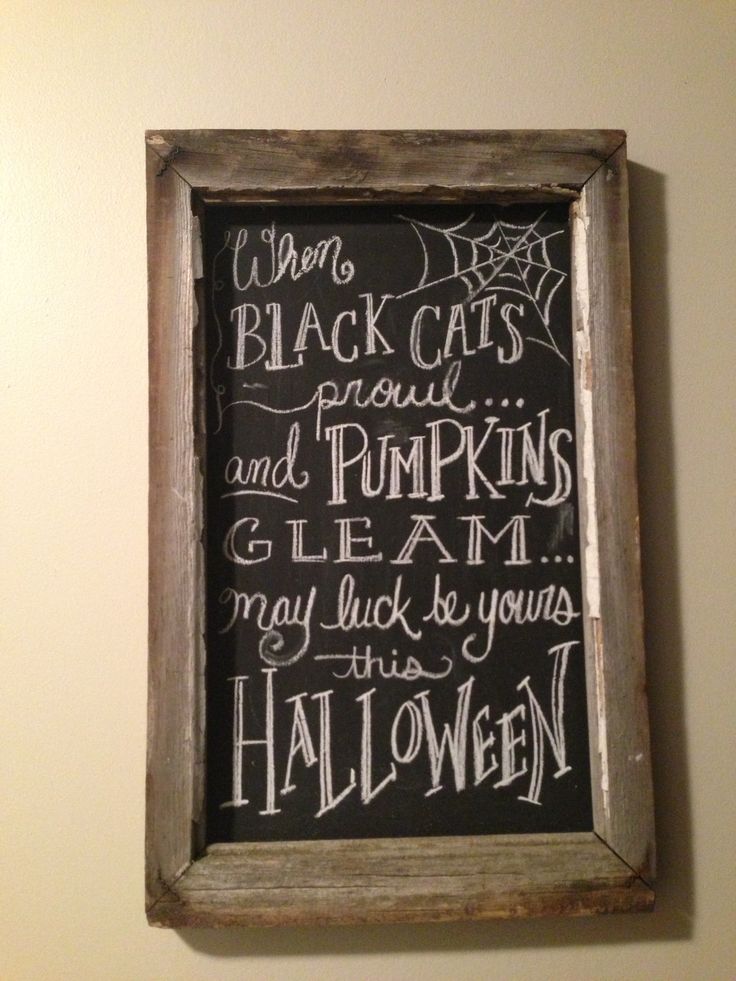 When
BLACK CATS
prowl...
and PUMPKINS
GLEAM...
may luck be yours
this
HALLOWEEN